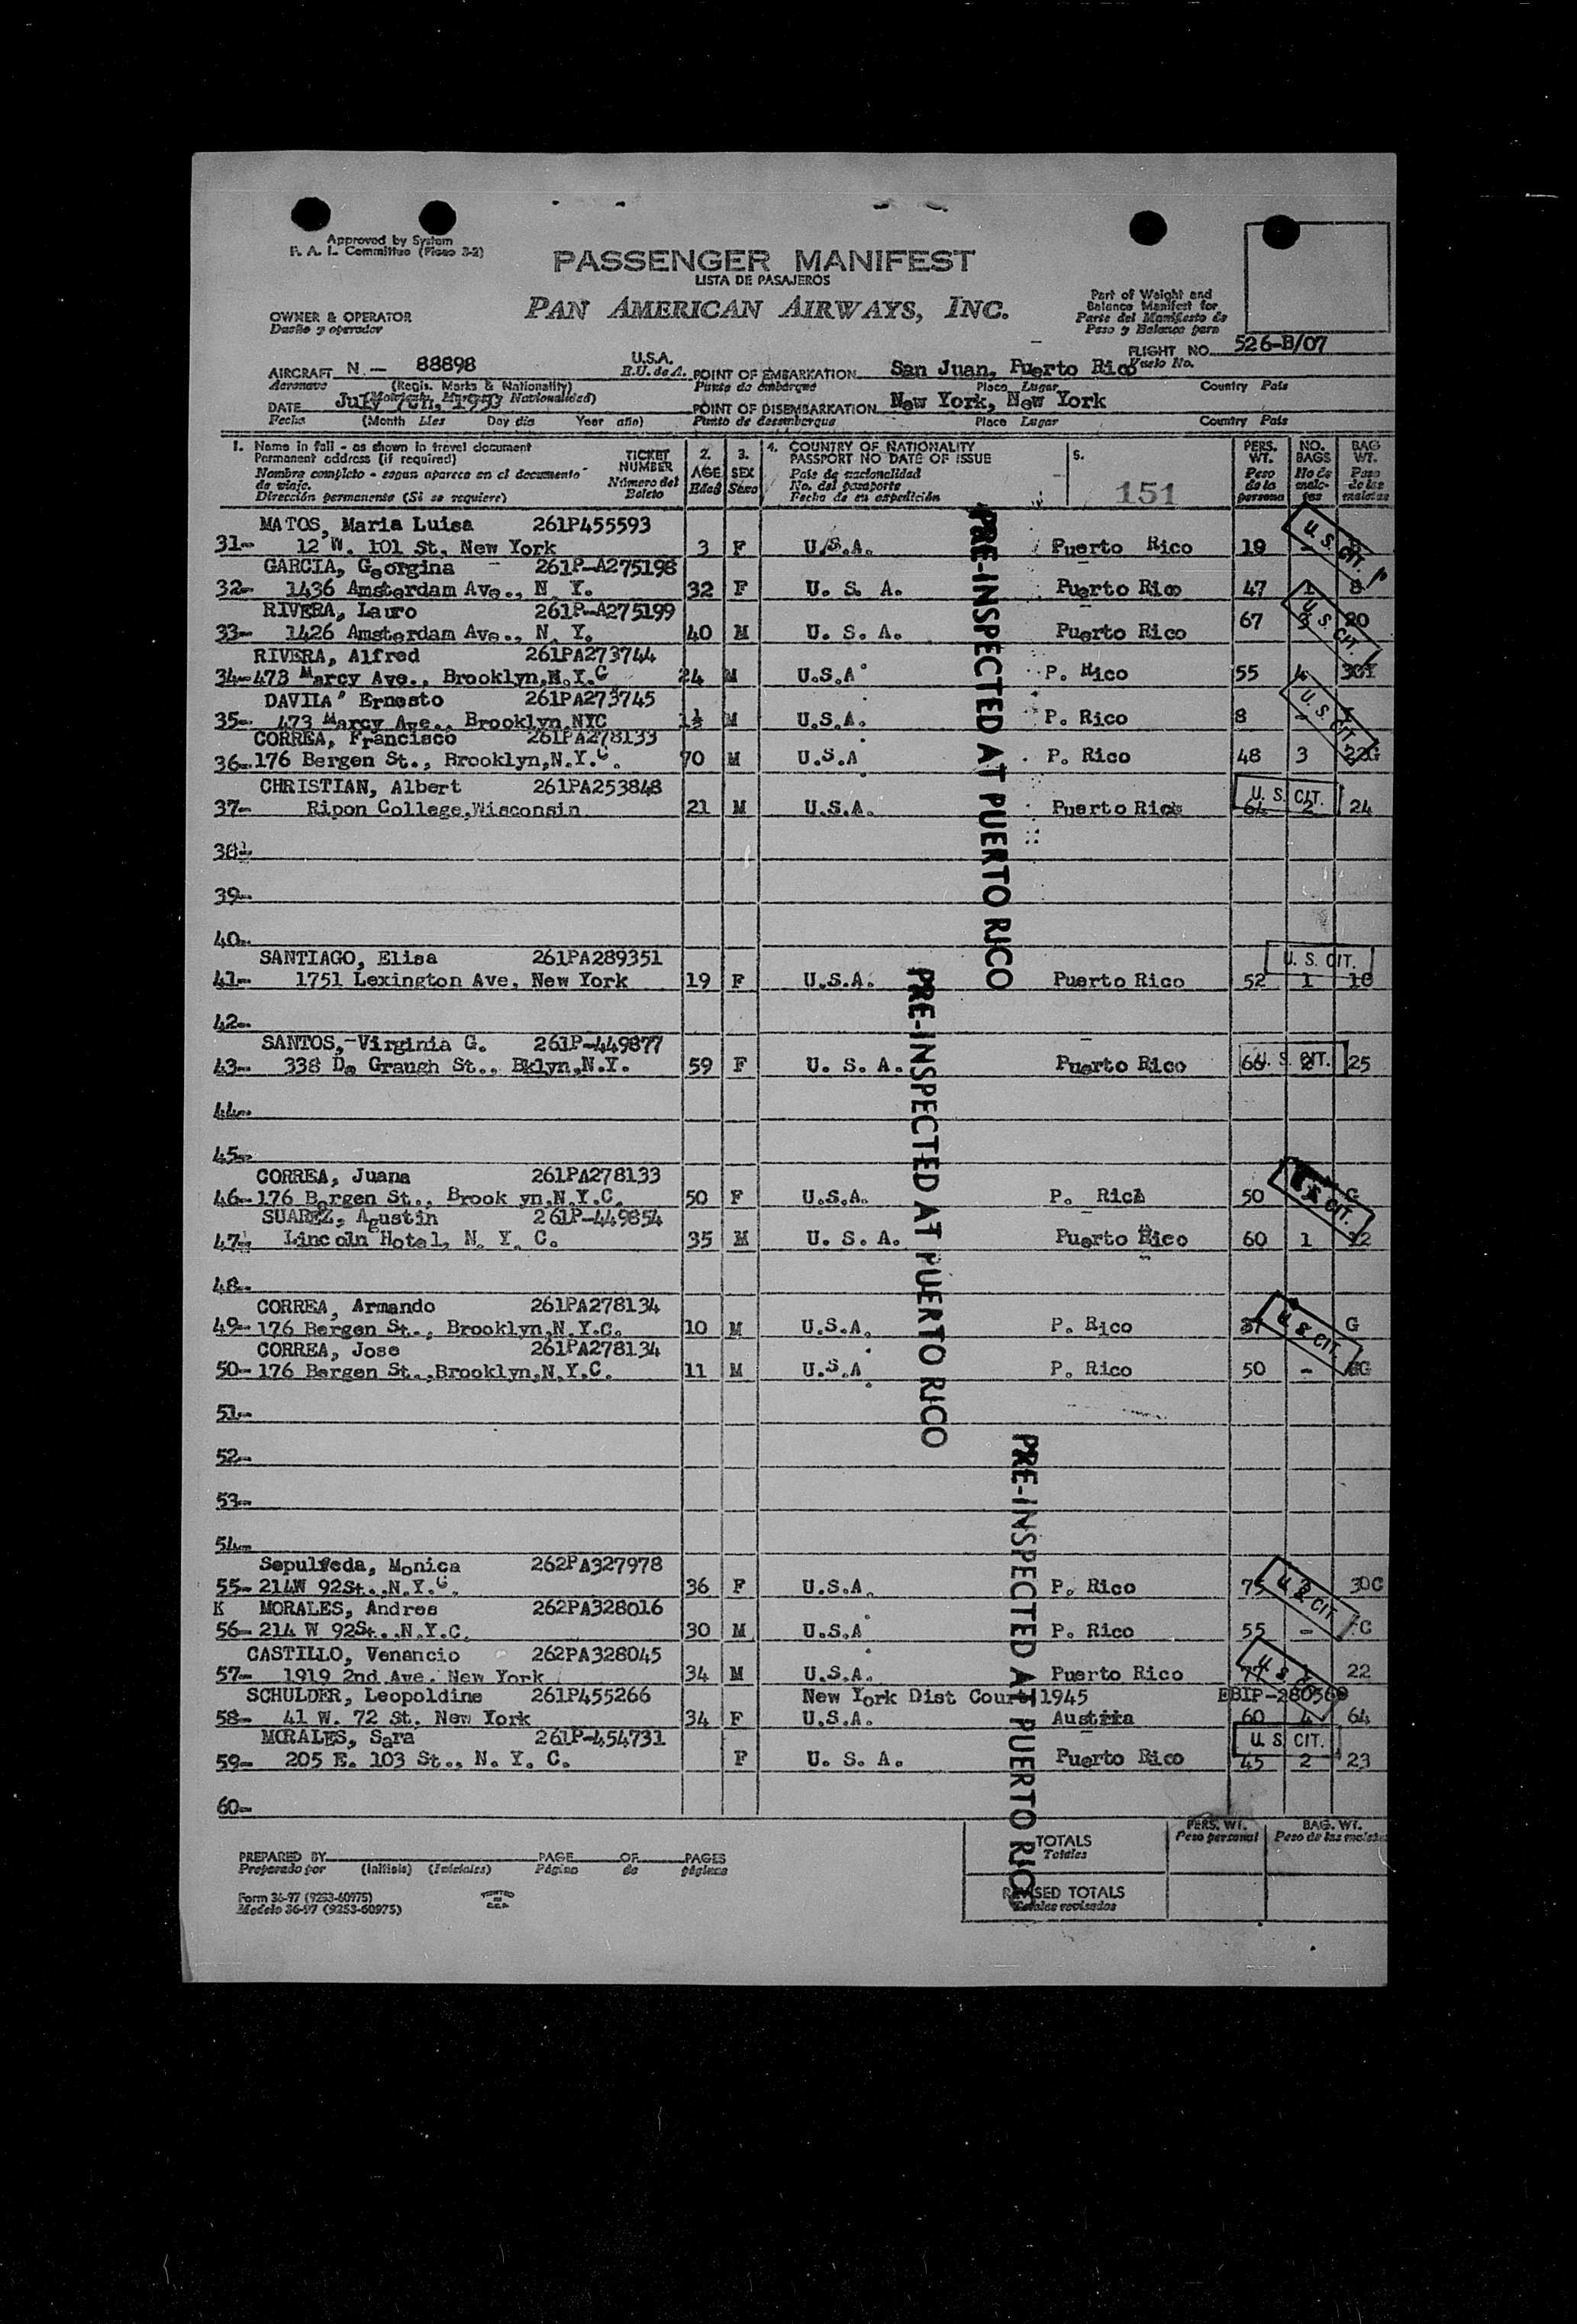 Approved by System
F. A. L. Committee
PASSENGER MANIFEST
LISTA DE PASAJEROS
PAN AMERICAN AIRWAYS, INC.
OWNER & OPERATOR
Dueño y operador
Part of Weight and
Balance Manifest for
Parte del Manifiesto de
Peso y Balance para
FLIGHT NO. 526-B/07
Vuelo No.
AIRCRAFT N - 88898 U.S.A.
Aeronave (Regis. Marks & Nationality) E.U. de A.
POINT OF EMBARKATION San Juan, Puerto Rico
Punto de embarque Place Lugar Country Pais
DATE July
Fecha (Month Mes Day dia Year año)
POINT OF DISEMBARKATION New York, New York
Punto de desembarque Place Lugar Country Pais
1. Name in full - as shown in travel document
Permanent address (if required)
Nombre completo - segun aparece en el documento
de viaje.
Dirección permanente (Si se requiere)
TICKET
NUMBER
Número del
Boleto
2.
AGE
Edad
3.
SEX
Sexo
4. COUNTRY OF NATIONALITY
PASSPORT NO DATE OF ISSUE
Pais de nacionalidad
No. del pasaporte
Fecha de su expedición
5.
151
PERS.
WT.
Peso
de la
persona
NO.
BAGS
No de
male-
tas
BAG
WT.
Peso
de las
maletas
MATOS, Maria Luisa 261P455593
31- 12 W. 101 St, New York 3 F U.S.A. Puerto Rico 19 -
GARCIA, Georgina 261P-A275198
32- 1436 Amsterdam Ave., N. Y. 32 F U. S. A. Puerto Rico 47 1 8
RIVERA, Lauro 261P-A275199
33- 1426 Amsterdam Ave., N. Y. 40 M U. S. A. Puerto Rico 67
RIVERA, Alfred 261PA273744
34-473 Marcy Ave., Brooklyn,N.Y.C 24 M U.S.A. P. Rico 55 4
DAVILA Ernesto 261PA273745
35- 473 Marcy Ave., Brooklyn,NYC 1½ M U.S.A. P. Rico 8 -
CORREA, Francisco 261PA278133
36-176 Bergen St., Brooklyn,N.Y.C. 70 M U.S.A P. Rico 48 3 22G
CHRISTIAN, Albert 261PA253848
37- Ripon College,Wisconsin 21 M U.S.A. Puerto Rico 64 2 24
38-
39-
40-
SANTIAGO, Elisa 261PA289351
41- 1751 Lexington Ave, New York 19 F U.S.A. Puerto Rico 52 1
42-
SANTOS,-Virginia G. 261P-449877
43- 338 De Graugh St., Bklyn,N.Y. 59 F U. S. A. Puerto Rico 66 2 25
44-
45-
CORREA, Juana 261PA278133
46-176 Bergen St., Brook yn,N.Y.C. 50 F U.S.A. P. Rico 50 G
SUAREZ, Agustin 261P-449854
47- Lincoln Hotel, N. Y. C. 35 M U. S. A. Puerto Rico 60 1 12
48-
CORREA, Armando 261PA278134
49-176 Bergen St., Brooklyn,N.Y.C. 10 M U.S.A. P. Rico G
CORREA, Jose 261PA278134
50-176 Bergen St.,Brooklyn,N.Y.C. 11 M U.S.A P. Rico 50 -
51-
52-
53-
54-
Sepulveda, Monica 262PA327978
55- 214W 92St.,N.Y.C. 36 F U.S.A. P. Rico 75 30C
K MORALES, Andres 262PA328016
56- 214 W 92St.,N.Y.C. 30 M U.S.A P. Rico 55 - C
CASTILLO, Venancio 262PA328045
57- 1919 2nd Ave. New York 34 M U.S.A. Puerto Rico 77 1 22
SCHULDER, Leopoldine 261P455266 New York Dist Court 1945
58- 41 W. 72 St. New York 34 F U.S.A. Austria 60 4 64
MORALES, Sara 261P-454731
59- 205 E. 103 St., N. Y. C. F U. S. A. Puerto Rico 45 2 23
60-
PRE-INSPECTED AT PUERTO RICO
PRE-INSPECTED AT PUERTO RICO
PRE-INSPECTED AT PUERTO RICO
U. S. CIT.
U. S. CIT.
U. S. CIT.
U. S. CIT.
U. S. CIT.
U. S. CIT.
U. S. CIT.
U. S. CIT.
U. S. CIT.
PERS. WT.
Peso personal
BAG. WT.
Peso de las maletas
TOTALS
Totales
REVISED TOTALS
Totales revisados
PREPARED BY PAGE OF PAGES
Preparado por (Initials) (Iniciales) Página de páginas
Form 36-97 (9253-60975)
Modelo 36-97 (9253-60975)
PRINTED
IN
U.S.A.